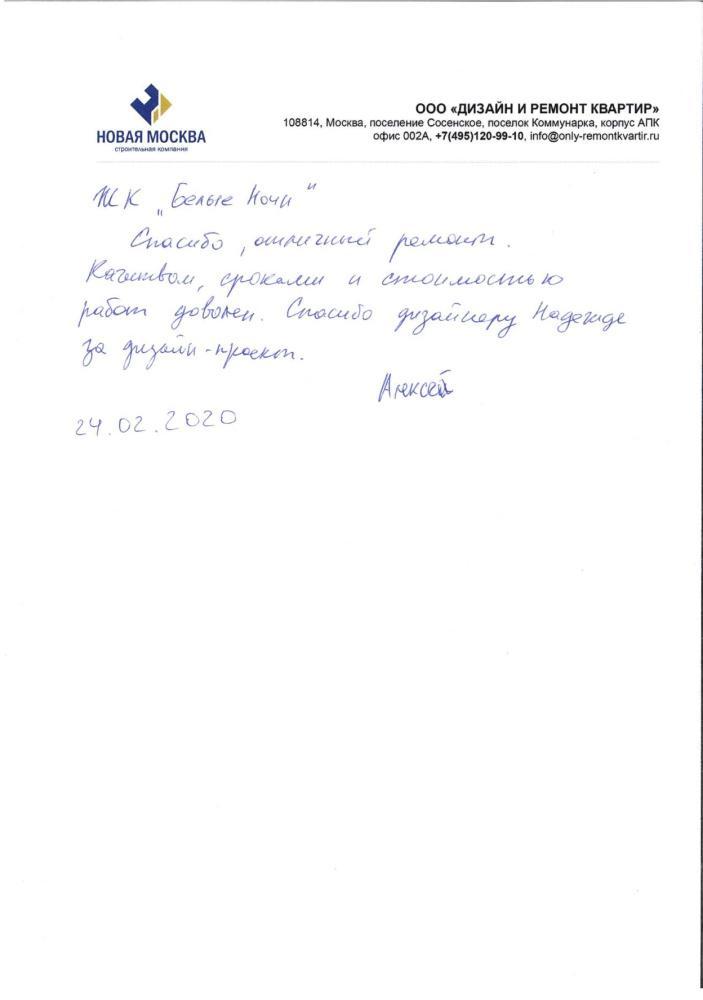 НОВАЯ МОСКВА
строительная компания
ООО «ДИЗАЙН И РЕМОНТ КВАРТИР»
108814, Москва, поселение Сосенское, поселок Коммунарка, корпус АПК
офис 002А, +7(495)120-99-10, info@only-remontkvartir.ru
ЖК „Белые Ночи"
Спасибо, отличный ремонт.
Качеством, сроками и стоимостью
работ доволен. Спасибо дизайнеру Надежде
за дизайн-проект.
Алексей
24.02.2020